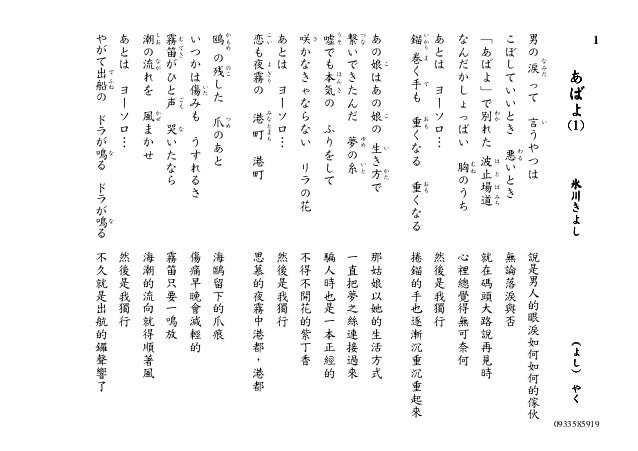 1
あばよ(1)
氷川きよし
(よし)やく
男の涙って 言うやつは
こぼしていいとき 悪いとき
「あばよ」で別れた 波止場道
なんだかしょっぱい 胸のうち
あとは ヨーソロ…
錨巻く手も 重くなる 重くなる
あの娘はあの娘の 生き方で
繋いできたんだ 夢の糸
嘘でも本気の ふりをして
咲かなきゃならない リラの花
あとは ヨーソロ…
恋も夜霧の 港町 港町
鴎の残した 爪のあと
いつかは傷みも うすれるさ
霧笛がひと声 哭いたなら
潮の流れを 風まかせ
あとは ヨーソロ…
やがて出船の ドラが鳴る ドラが鳴る
說是男人的眼淚如何如何的傢伙
無論落淚與否
就在碼頭大路說再見時
心裡總覺得無可奈何
然後是我獨行
捲錨的手也逐漸沉重沉重起來
那姑娘以她的生活方式
一直把夢之絲連接過來
騙人時也是一本正經的
不得不開花的紫丁香
然後是我獨行
思慕的夜霧中港都，港都
海鷗留下的爪痕
傷痛早晚會減輕的
霧笛只要一鳴放
海潮的流向就得順著風
然後是我獨行
不久就是出航的鑼聲響了
0933585919